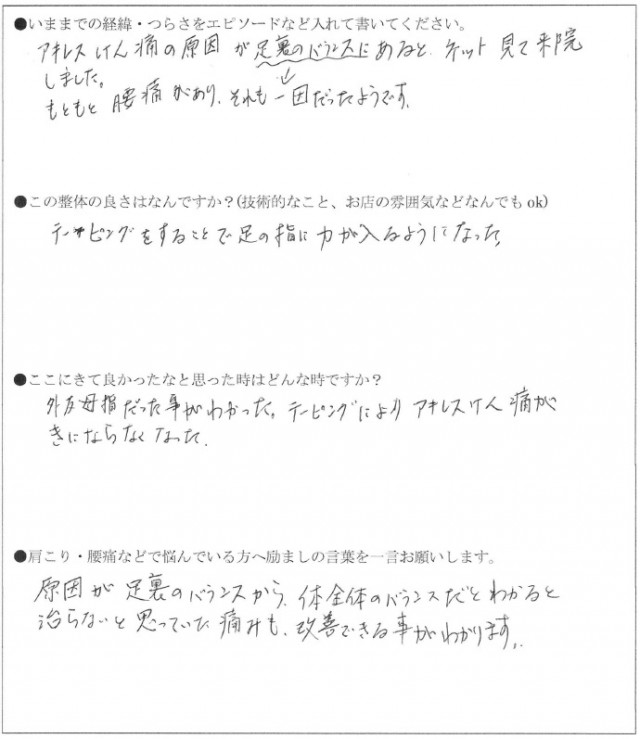 ●いままでの経緯・つらさをエピソードなど入れて書いてください。
アキレスけん痛の原因が足裏のバランスにあると、ネット見て来院
しました。
↓
もともと腰痛があり、それも一因だったようです。
●この整体の良さはなんですか？(技術的なこと、お店の雰囲気などなんでも ok)
テーピングをすることで足の指に力が入るようになった。
●ここにきて良かったなと思った時はどんな時ですか？
外反母指だった事がわかった。テーピングにより アキレスけん痛が
きにならなくなった。
●肩こり・腰痛などで悩んでいる方へ励ましの言葉を一言お願いします。
原因が足裏のバランスから、体全体のバランスだとわかると
治らないと思っていた痛みも、改善できる事がわかります。